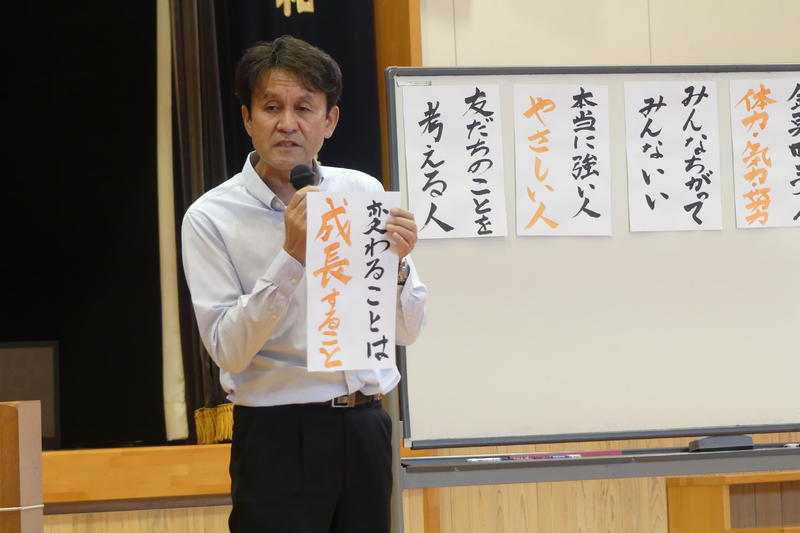 変わることは
成長すること
友だちのことを
考える人
本当に強い人
やさしい人
みんなちがって
みんないい
体力・気力・努力